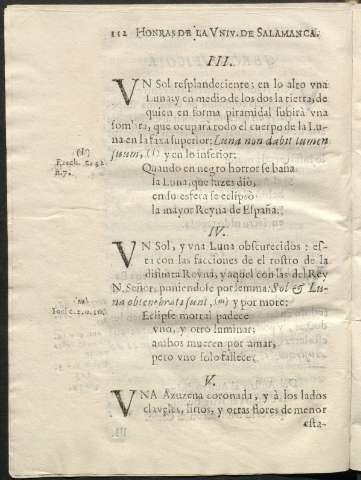 112 HONRAS DE LA VNIV. DE SALAMANCA.
III.
VN Sol resplandeciente; en lo alto vna
Luna; y en medio de los dos la tierra, de
quien en forma piramidal subirà vna
sombra, que ocuparà todo el cuerpo de la Lu-
na en la faxa superior: Luna non dabit lumen
suum, (l) y en lo inferior:
(l)
Ezech. c. 32.
n. 7.
Quando en negro horror se baña
la Luna, que luzes diò,
en su esfera se eclipsò
la mayor Reyna de España.
IV.
VN Sol, y vna Luna obscurecidos: es-
ta con las facciones de el rostro de la
difunta Reyna, y aquel con las del Rey
N. Señor, poniendole por lemma: Sol & Lu-
na obtenebrata sunt, (m) y por mote:
(m)
Joel c. 2. n. 10.
Eclipse mortal padece
vno, y otro luminar;
ambos mueren por amar,
pero vno solo fallece.
V.
VNA Azuzena coronada, y à los lados
claveles, lirios, y otras flores de menor
esta-